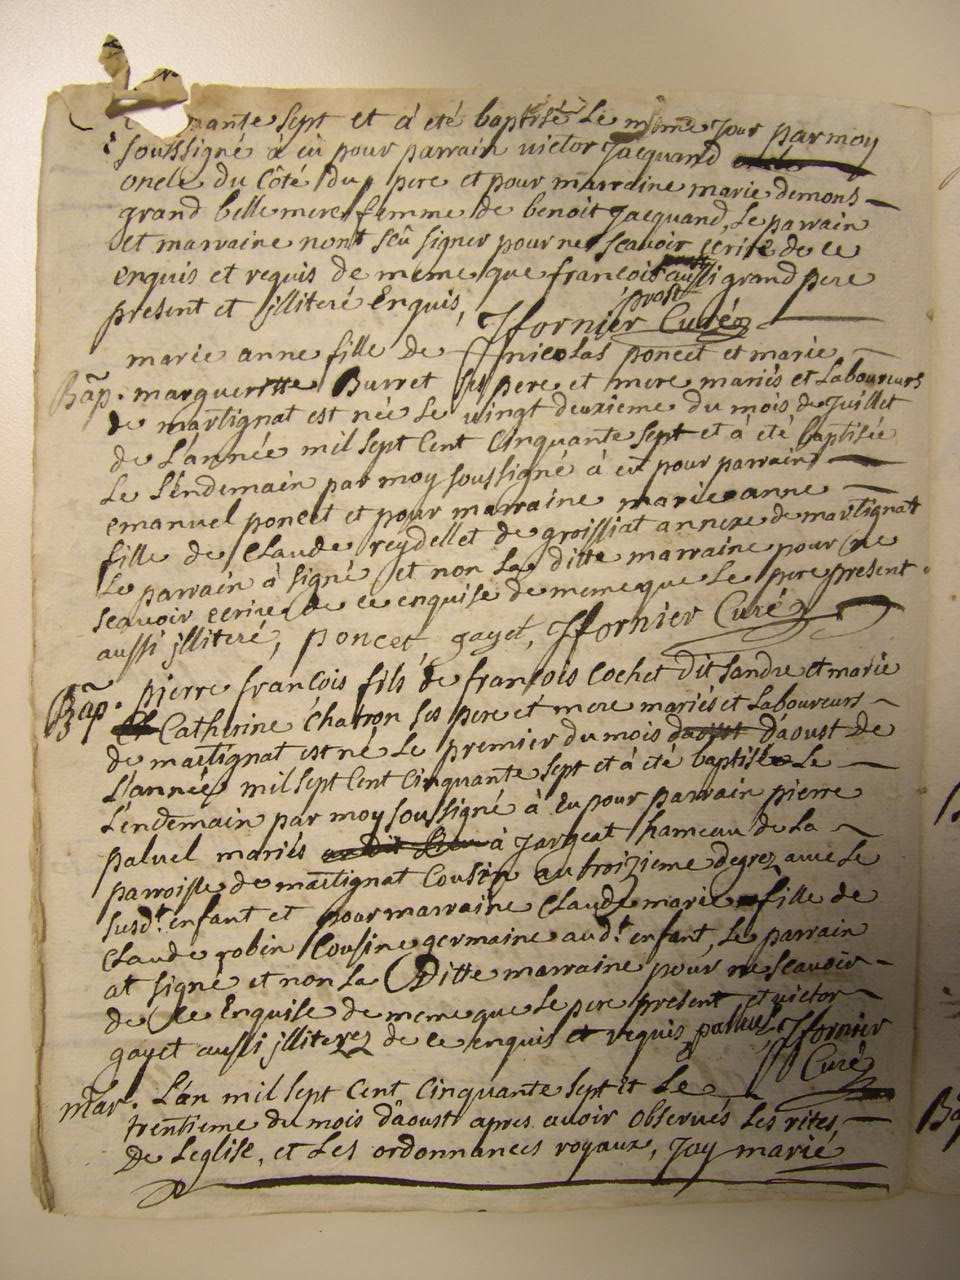 quante sept et á eté baptisé le même jour par moy
soussigné à eu pour parrain victor Jacquand
oncle du Côté du pere et pour marraine marie demons
grand belle mere femme de benoit Jacquand, le parrain
et marraine n'ont scû signer pour ne scavoir ecrire de ce
enquis et requis de meme que francois prost aussi grand pere
present et illiteré Enquis, Jfornier Curé
Bap. marie anne fille de nicolas poncet et marie
margueritte Burret ses pere et mere mariés et Laboureurs
de martignat est née le vingt deuxieme du mois de Juillet
de L'année mil sept Cent Cinquante sept et á été baptisée
le L'endemain par moy soussigné á eu pour parrain
emanuel poncet et pour marraine marie anne
fille de Claude reydellet de groissiat annexe de martignat
le parrain á signé et non la ditte marraine pour ne
scavoir ecrire de ce enquise de meme que le pere present
aussi illiteré, poncet, gayet, Jfornier Curé
Bap. pierre francois fils de francois Cochet dit Landre et marie
Catherine Chatron ses pere et mere mariés et Laboureurs
de martignat est né le premier du mois daoust d'aoust de
L'année mil sept Cent Cinquante sept et á été baptisé le
L'endemain par moy soussigné á Eu pour parrain pierre
paluel mariés á Jargeat hameau de la
parroisse de martignat Cousin au troizieme degrez avec le
susd.t enfant et pour marraine Claude marie fille de
Claude robin Cousine germaine aud.t enfant, le parrain
at signé et non la Ditte marraine pour ne scavoir
de ce Enquise de meme que le pere present et victor
gayet aussi illiterez de ce enquis et requis, paluel, Jfornier
Curé
mar. L'an mil sept Cent Cinquante sept et Le
trentieme du mois d'aoust apres avoir observés les rites
de Leglise, et Les ordonnances royaux, Jay marié